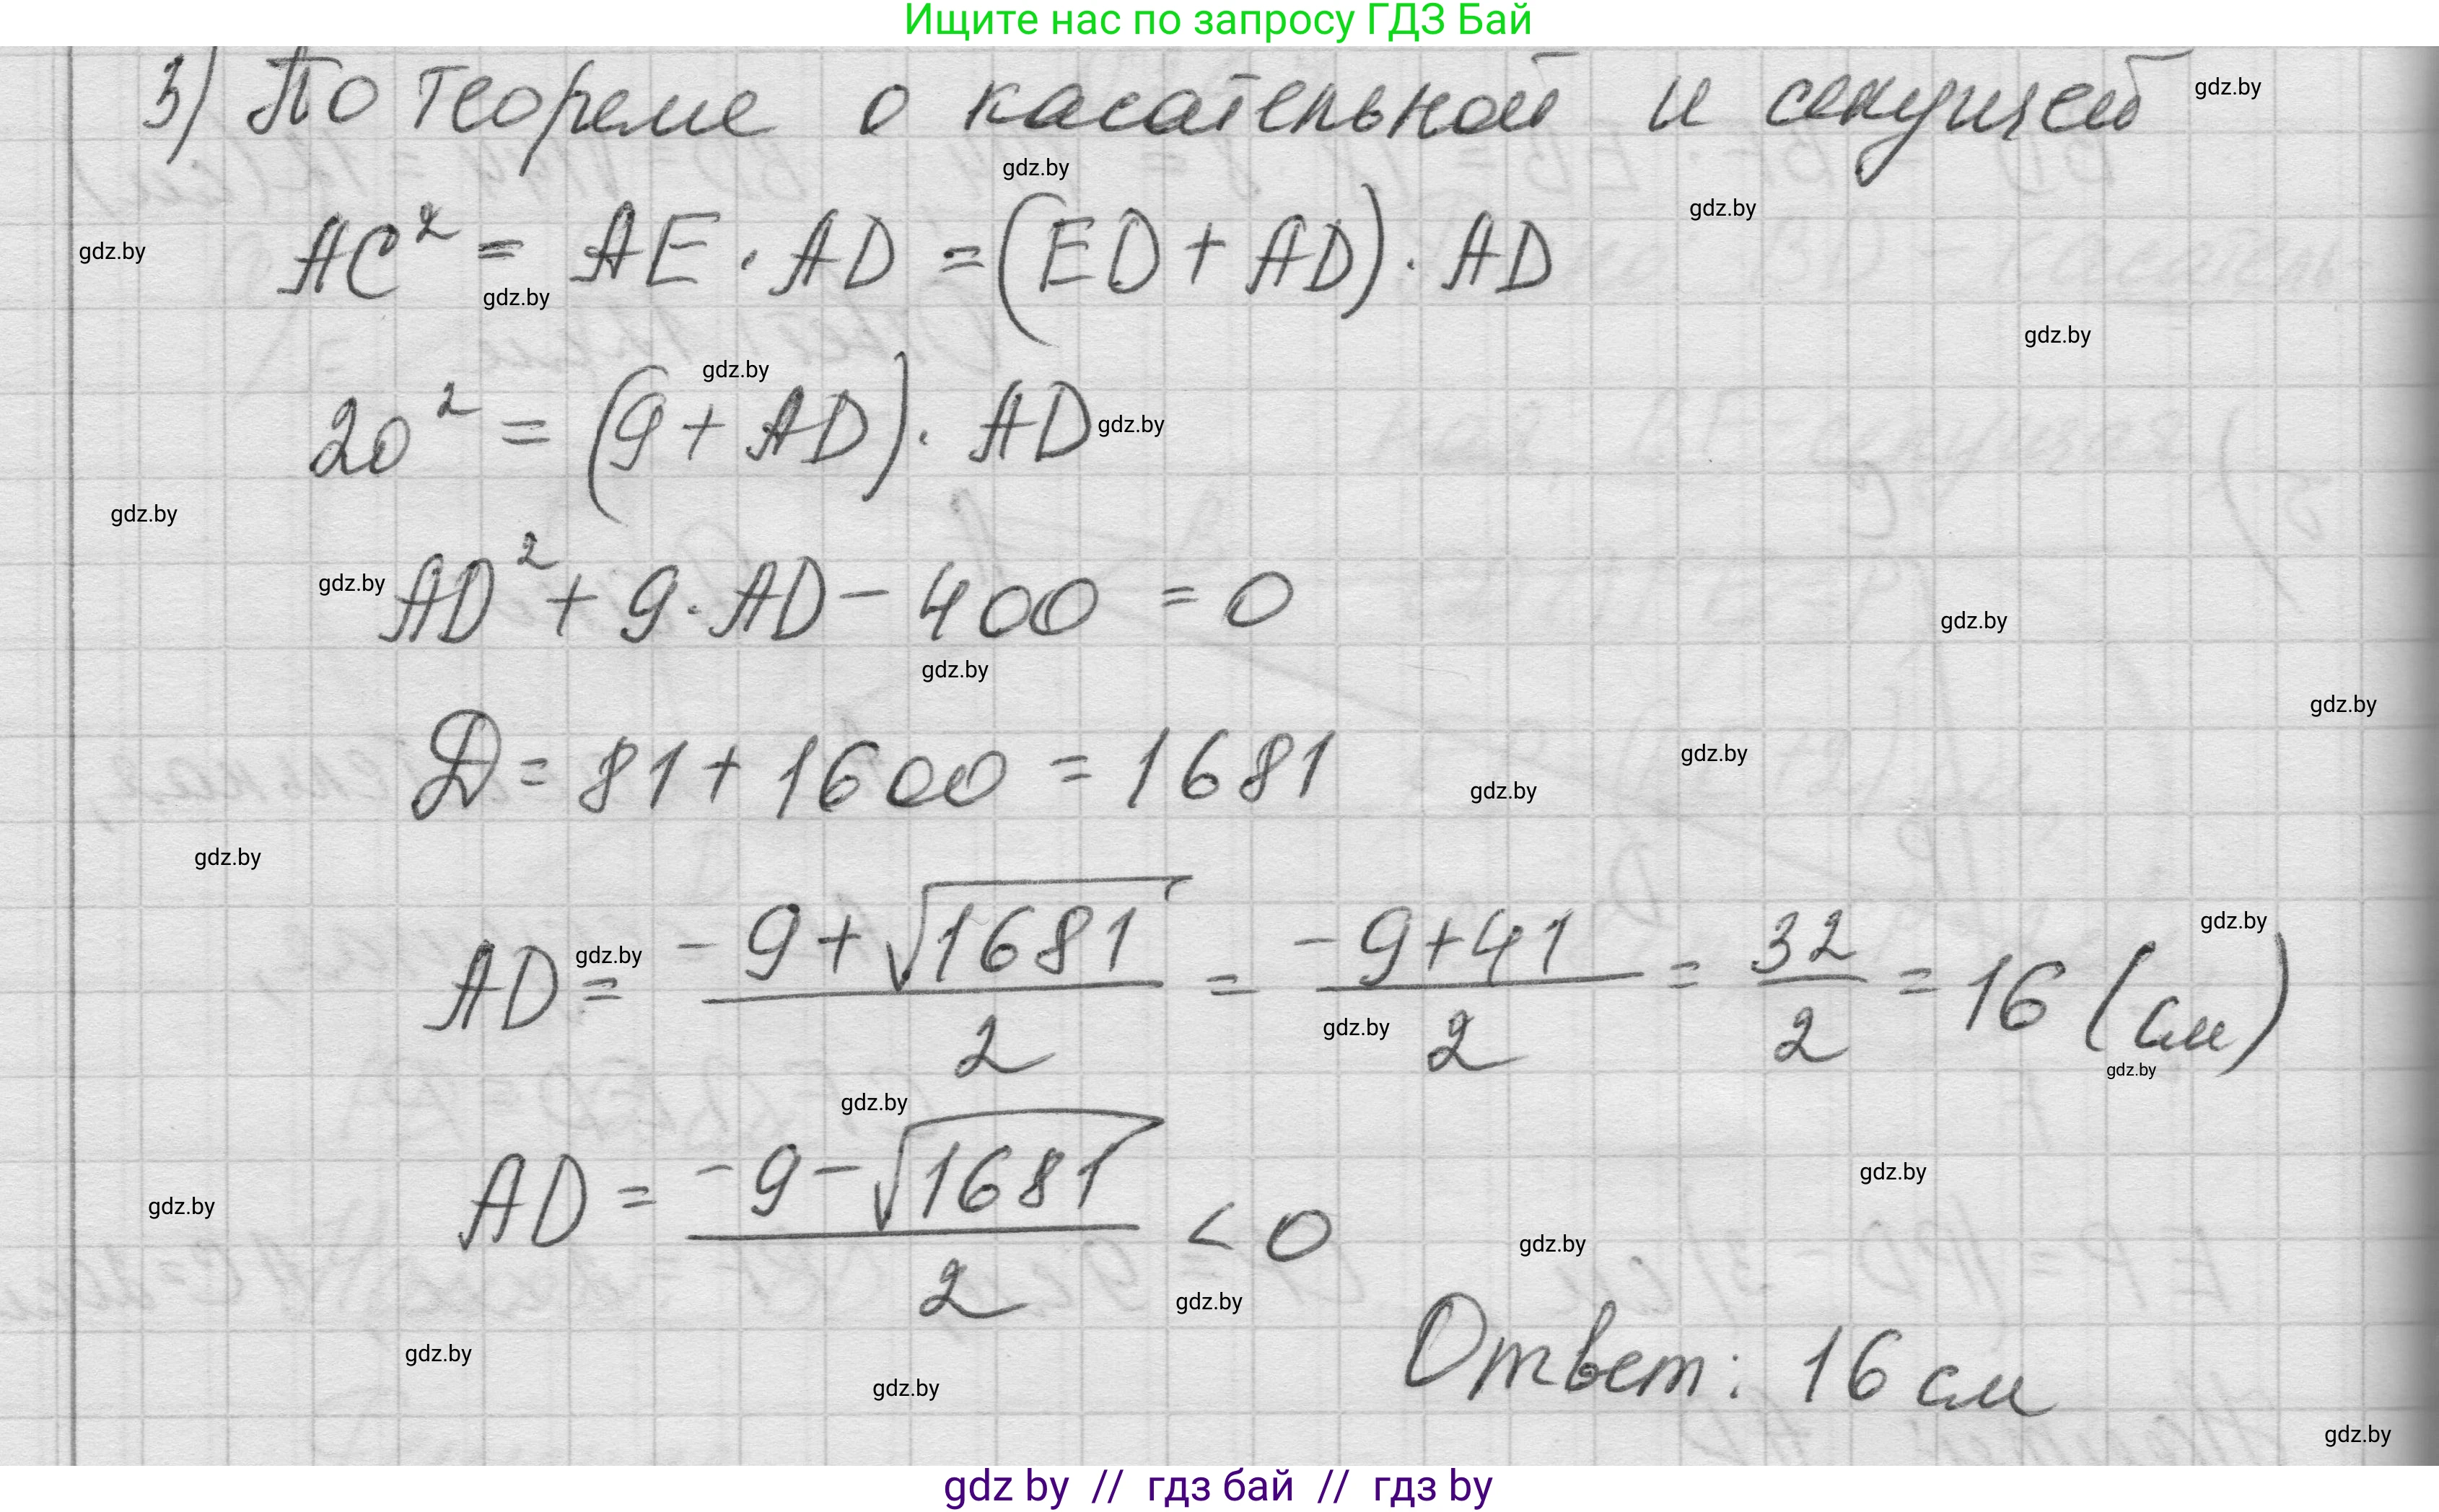 Ищите нас по запросу ГДЗ Бай
3) По теореме о касательной и секущей
gdz.by
gdz.by
gdz.by
AC² = AE · AD = (ED + AD) · AD
gdz.by
gdz.by
gdz.by
gdz.by
20² = (9 + AD) · AD
gdz.by
gdz.by
AD² + 9 · AD - 400 = 0
gdz.by
gdz.by
gdz.by
gdz.by
D = 81 + 1600 = 1681
gdz.by
gdz.by
gdz.by
AD = (-9 + √1681)/2 = (-9 + 41)/2 = 32/2 = 16 (см)
gdz.by
gdz.by
gdz.by
gdz.by
gdz.by
AD = (-9 - √1681)/2 < 0
gdz.by
gdz.by
gdz.by
gdz.by
Ответ: 16 см
gdz.by
gdz.by
gdz.by
gdz by // гдз бай // гдз by